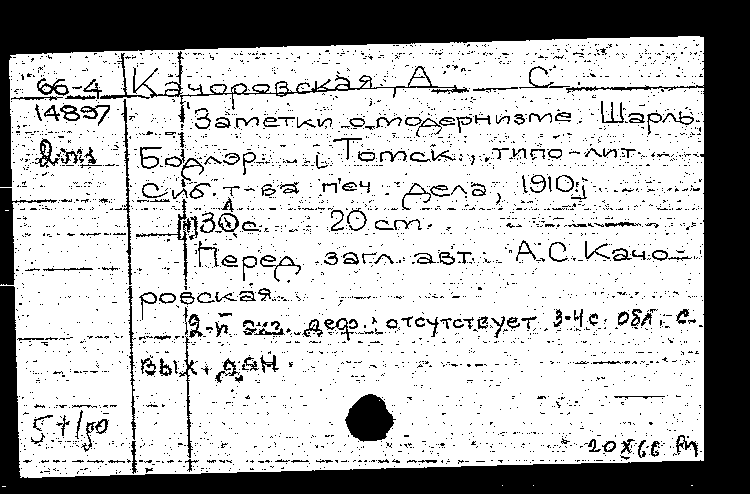 66-4 Качоровская, А. С.
14897 Заметки о модернизме. Шарль
2 экз Бодлэр. Томск, типо-лит.
Сиб. т-ва печ. дела, 1910.
с. 20 см.
Перед загл. авт.: А.С. Качо-
ровская.
2-й экз. деф.: отсутствует 3-4 с. обл. с
вых. дан.
20 X 66